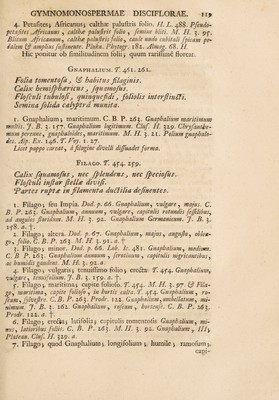 GYMNOMONOSPERMAE DISCIFLORAE. 119
4. Petasites, Africanus, calthæ palustris folio. H. L. 488. Pseudo-
petasites Africanus, calthæ palustris folio, semine bliti. M. H. 3. 95.
Blitum Africanum, calthæ palustris folio, caule undo cubitali spicam pe-
dalem & amplius sustinente. Plukn. Phytogr. 182. Almag. 68. H.
Hic ponitur ob similitudinem folii, quum rarissimè floreat.
GNAPHALIUM. T. 461. 261.
Folia tomentosa, & habitus filaginis.
Calix hemisphæricus, squamosus.
Flosculi tubulosi, quinquefidi, foliolis interstincti.
Semina solida calyptrâ munita.
1. Gnaphalium; maritimum. C. B. P. 263. Gnaphalium maritimum
multis. J. B. 3. 157. Gnaphalium legitimum. Cluf. H. 329. Chrysanthe-
mum perenne, gnaphaloides, maritimum. M. H. 3. 21. Polium gnaphalo-
des. Alp. Ex. 146. T. Voy. 1. 27.
Licet pappo careat, à filagine divelli dissuadet forma.
FILAGO. T. 454. 259.
Calix squamosus, nec splendens, nec speciosus.
Flosculi instar stellæ divisi.
Partes ruptæ in filamenta ductilia desinentes.
1. Filago; seu Impia. Dod. p. 66. Gnaphalium, vulgare, majus. C.
B. P. 263. Gnaphalium, annuum, vulgare, capitulis rotundis sessilibus,
ad angulos floridum. M. H. 3. 92. Gnaphalium Germanicum. J. B. 3.
158. a. †.
2. Filago; altera. Dod. p. 67. Gnaphalium, majus, angusto, oblon-
go, folio. C. B. P. 263. M. H 3. 92. a. †.
3. Filago; minor. Dod. p. 66. Lob. Ic. 481. Gnaphalium, medium.
C. B. P. 263. Gnaphalium annuum, serotinum, capitulis nigricantibus,
in humidis gaudens. M. H. 3. 92. a.
4. Filago; vulgaris; tenuissimo folio; erecta. T. 454. Gnaphalium,
vulgare, tenuifolium. J. B. 3. 159. a. †.
5. Filago; maritima; capite folioso. T. 454. M. H. 3. 97. & Fila-
go, maritima, capite folioso, in hortis culta. T. 454. Gnaphalium, ro-
seum, sylvestre. C. B. P. 263. Prodr. 122. Gnaphalium, umbellatum, mi-
nimum. J. B. 3. 162. Gnaphalium, roseum, hortense. C. B. P. 263.
Prodr. 122. a. †.
6. Filago; erecta; latifolia; capitulis tomentosis Gnaphalium, mi-
nus, latioribus foliis. C. B. P. 263. M. H. 3. 92. Gnaphalium, III;
Plateau. Cluf. H. 329. a.
7. Filago; quod Gnaphalium; longifolium; humile; ramosum;
capi-